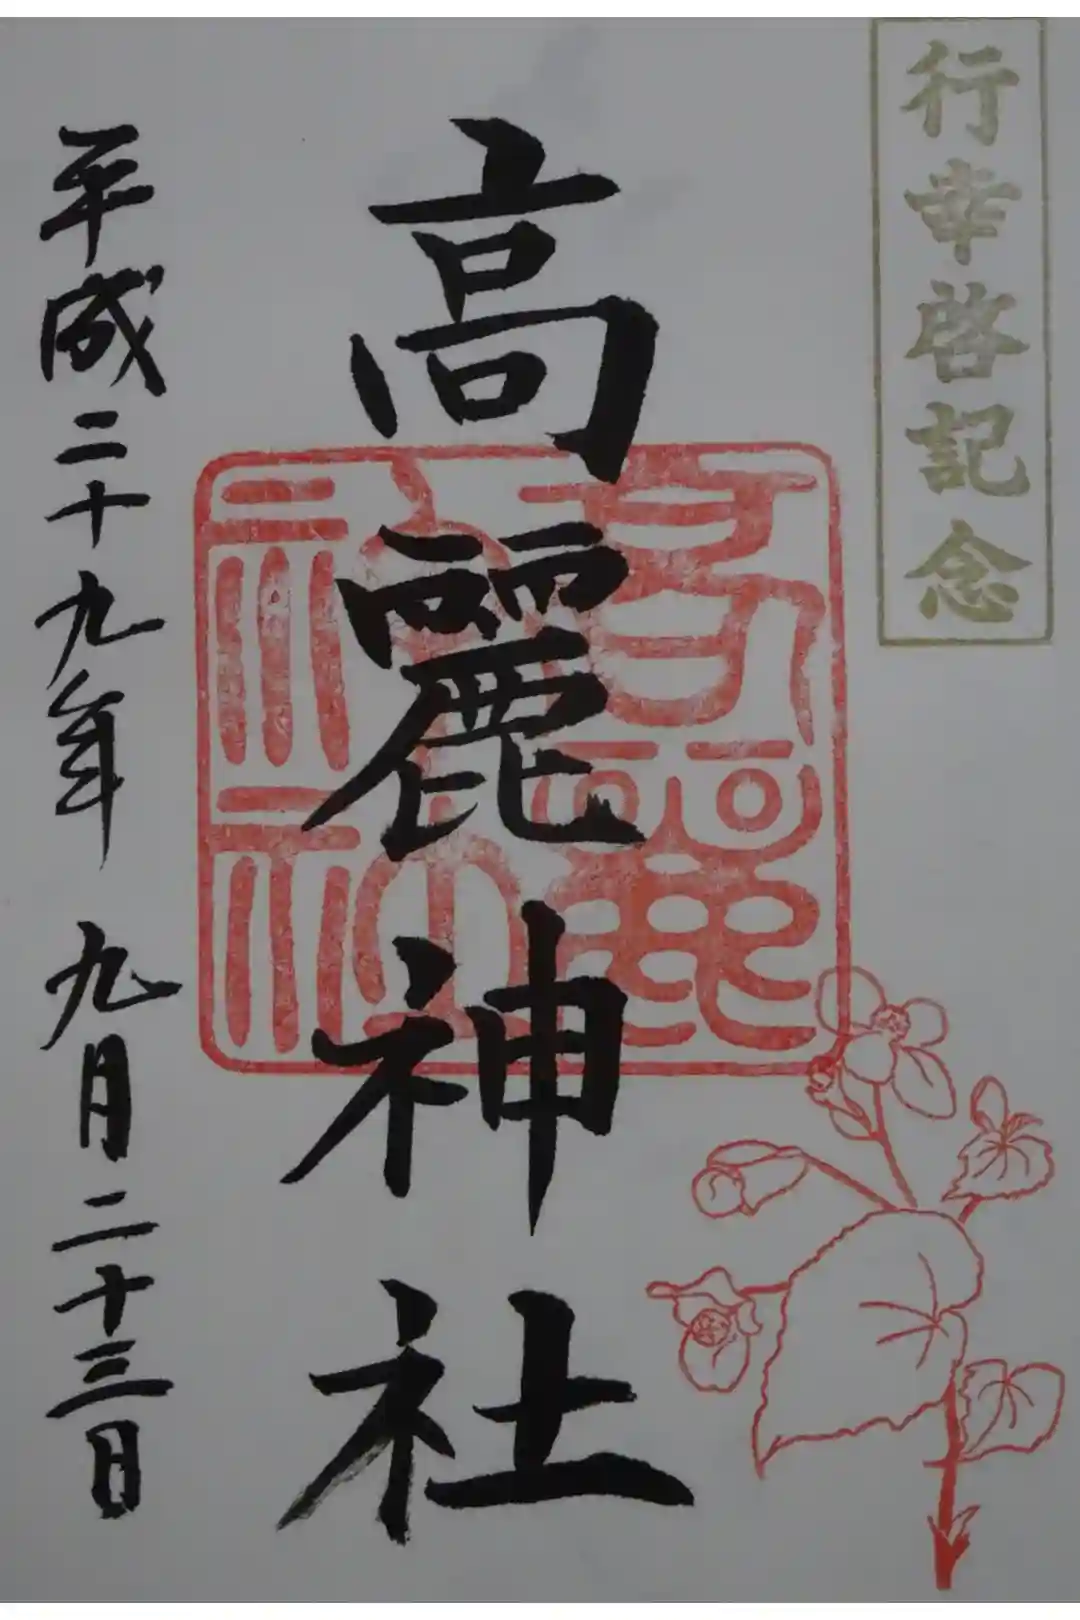 行幸啓記念
高麗神社
高麗神社
平成二十九年 九月二十三日